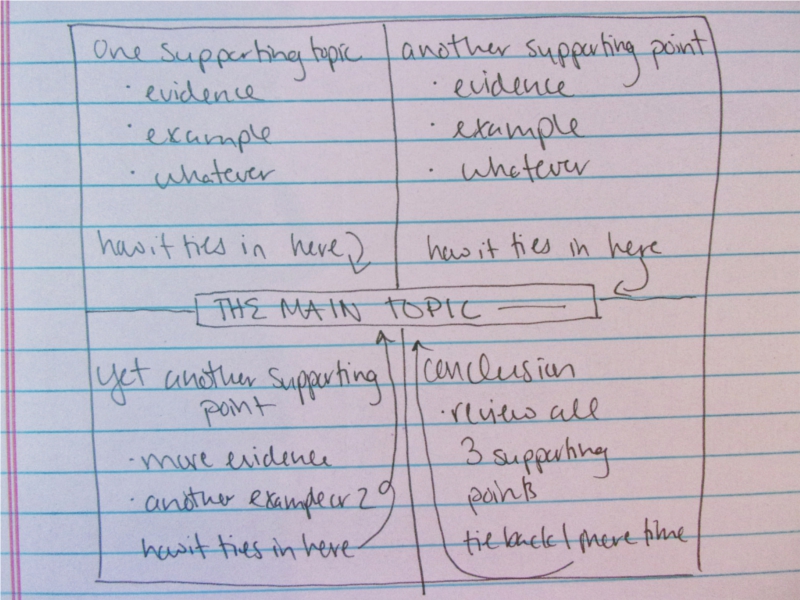 one supporting topic
· evidence
· example
· whatever
how it ties in here
another supporting point
· evidence
· example
· whatever
how it ties in here
THE MAIN TOPIC
yet another supporting
point
· more evidence
· another example or 2
how it ties in here
conclusion
· review all
3 supporting
points
tie back 1 more time